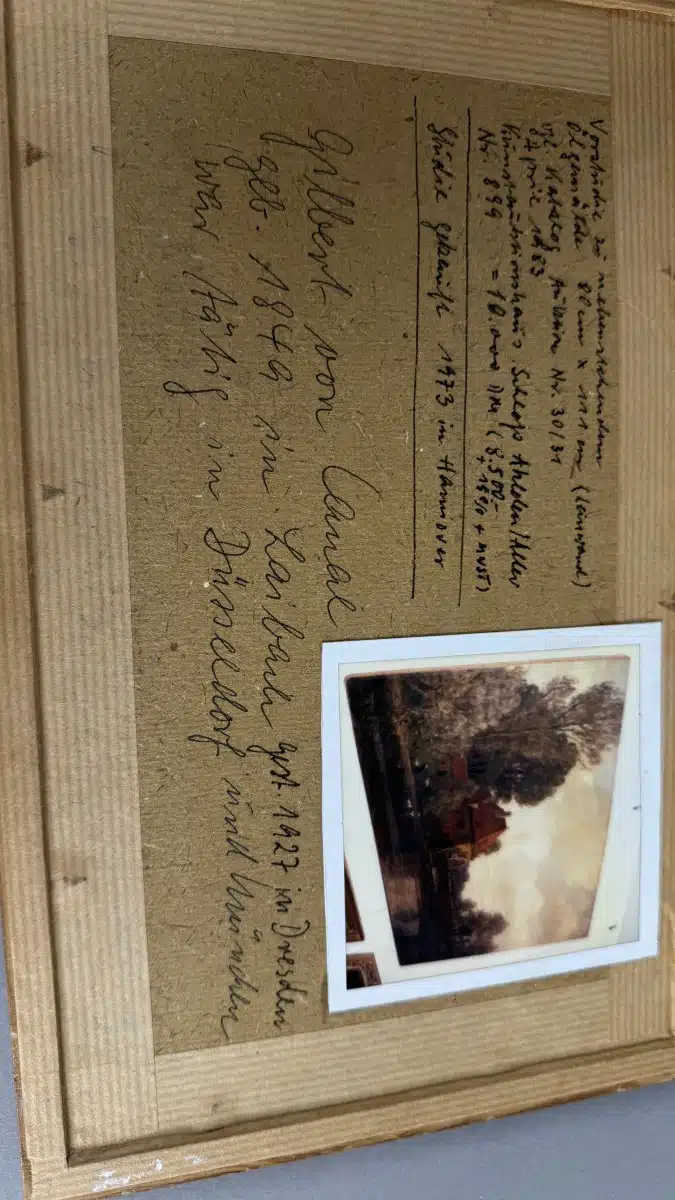 Vorstudie zu nebenstehendem
Ölgemälde 80cm x 111cm (Leinwand)
vgl. Katalog Auktion Nr. 30/31
1983
Kunstauktionshaus Schloß Ahlden/Aller
Nr. 899 = 10.000 DM (8.500.-
+ 15% + MWST)
Studie gekauft 1973 in Hannover
Gilbert von Canal
geb. 1849 in Laibach gest. 1927 in Dresden
war tätig in Düsseldorf und München